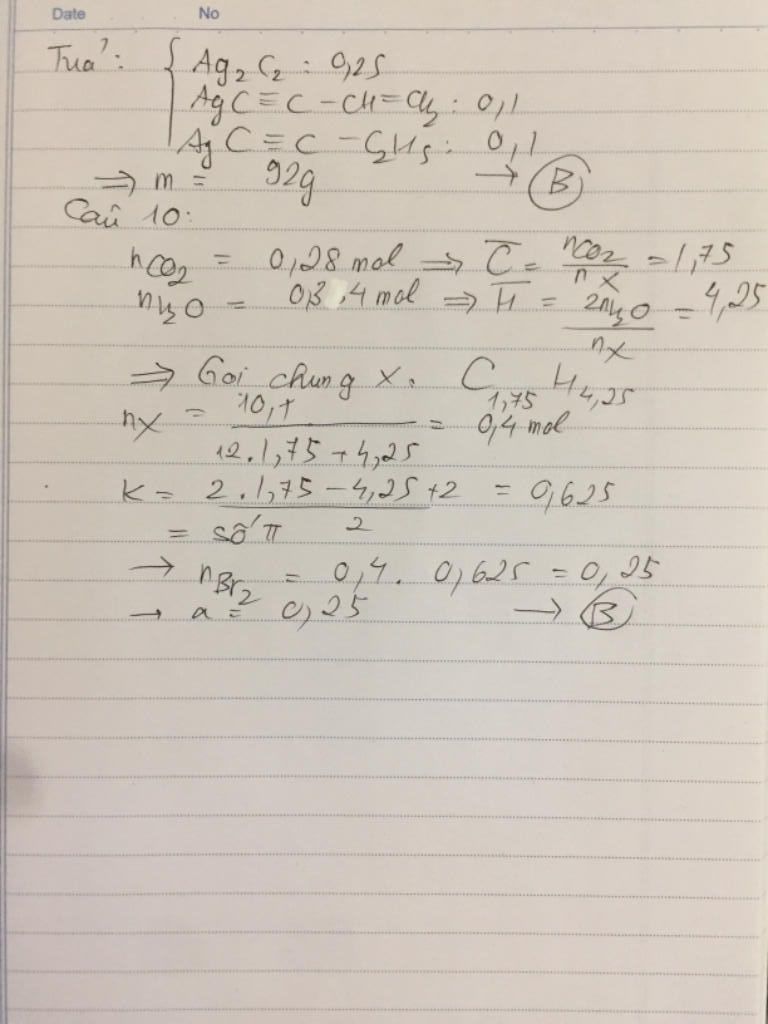 Date No
Tủa: { Ag₂C₂ : 0,25
AgC≡C-CH=CH₂ : 0,1
AgC≡C-C₂H₅ : 0,1
=> m = 92g → B
Câu 10:
nCO₂ = 0,28 mol => C̅ = nCO₂/nX = 1,75
nH₂O = 0,3.4 mol => H̅ = 2nH₂O/nX = 4,25
=> Gọi chung X. C₁,₇₅H₄,₂₅
nX = 10,1/(12.1,75+4,25) = 0,4 mol
K = (2.1,75-4,25+2)/2 = 0,625
= số π
→ nBr₂ = 0,4. 0,625 = 0,25
→ a = 0,25 → B